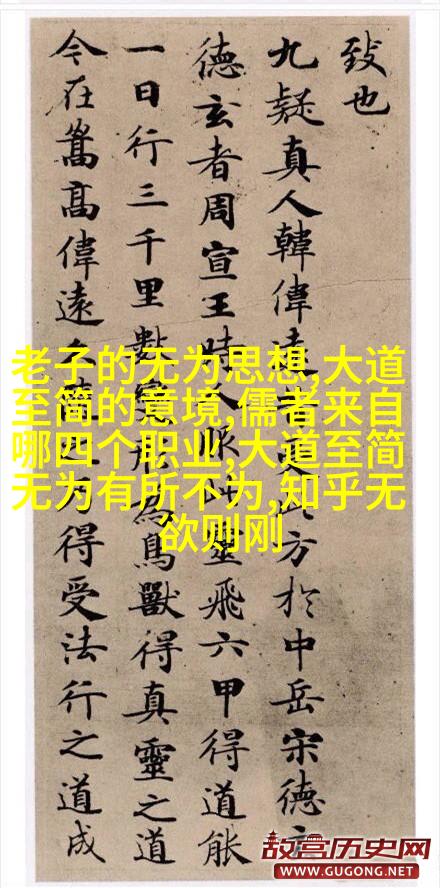 致也
九疑真人韓偉遠昔受此方於中岳宋德玄
德玄者周宣王時人服此靈飛六甲得道能
一日行三千里數變形為鳥獸得真靈之道
今在嵩高偉遠久隨之乃得受法行之道成
老子的无为思想,大道
至简的意境,儒者来自
哪四个职业,大道至简
无为有所不为,知乎无
欲则刚
故宫历史网
WWW.GUGONG.NET